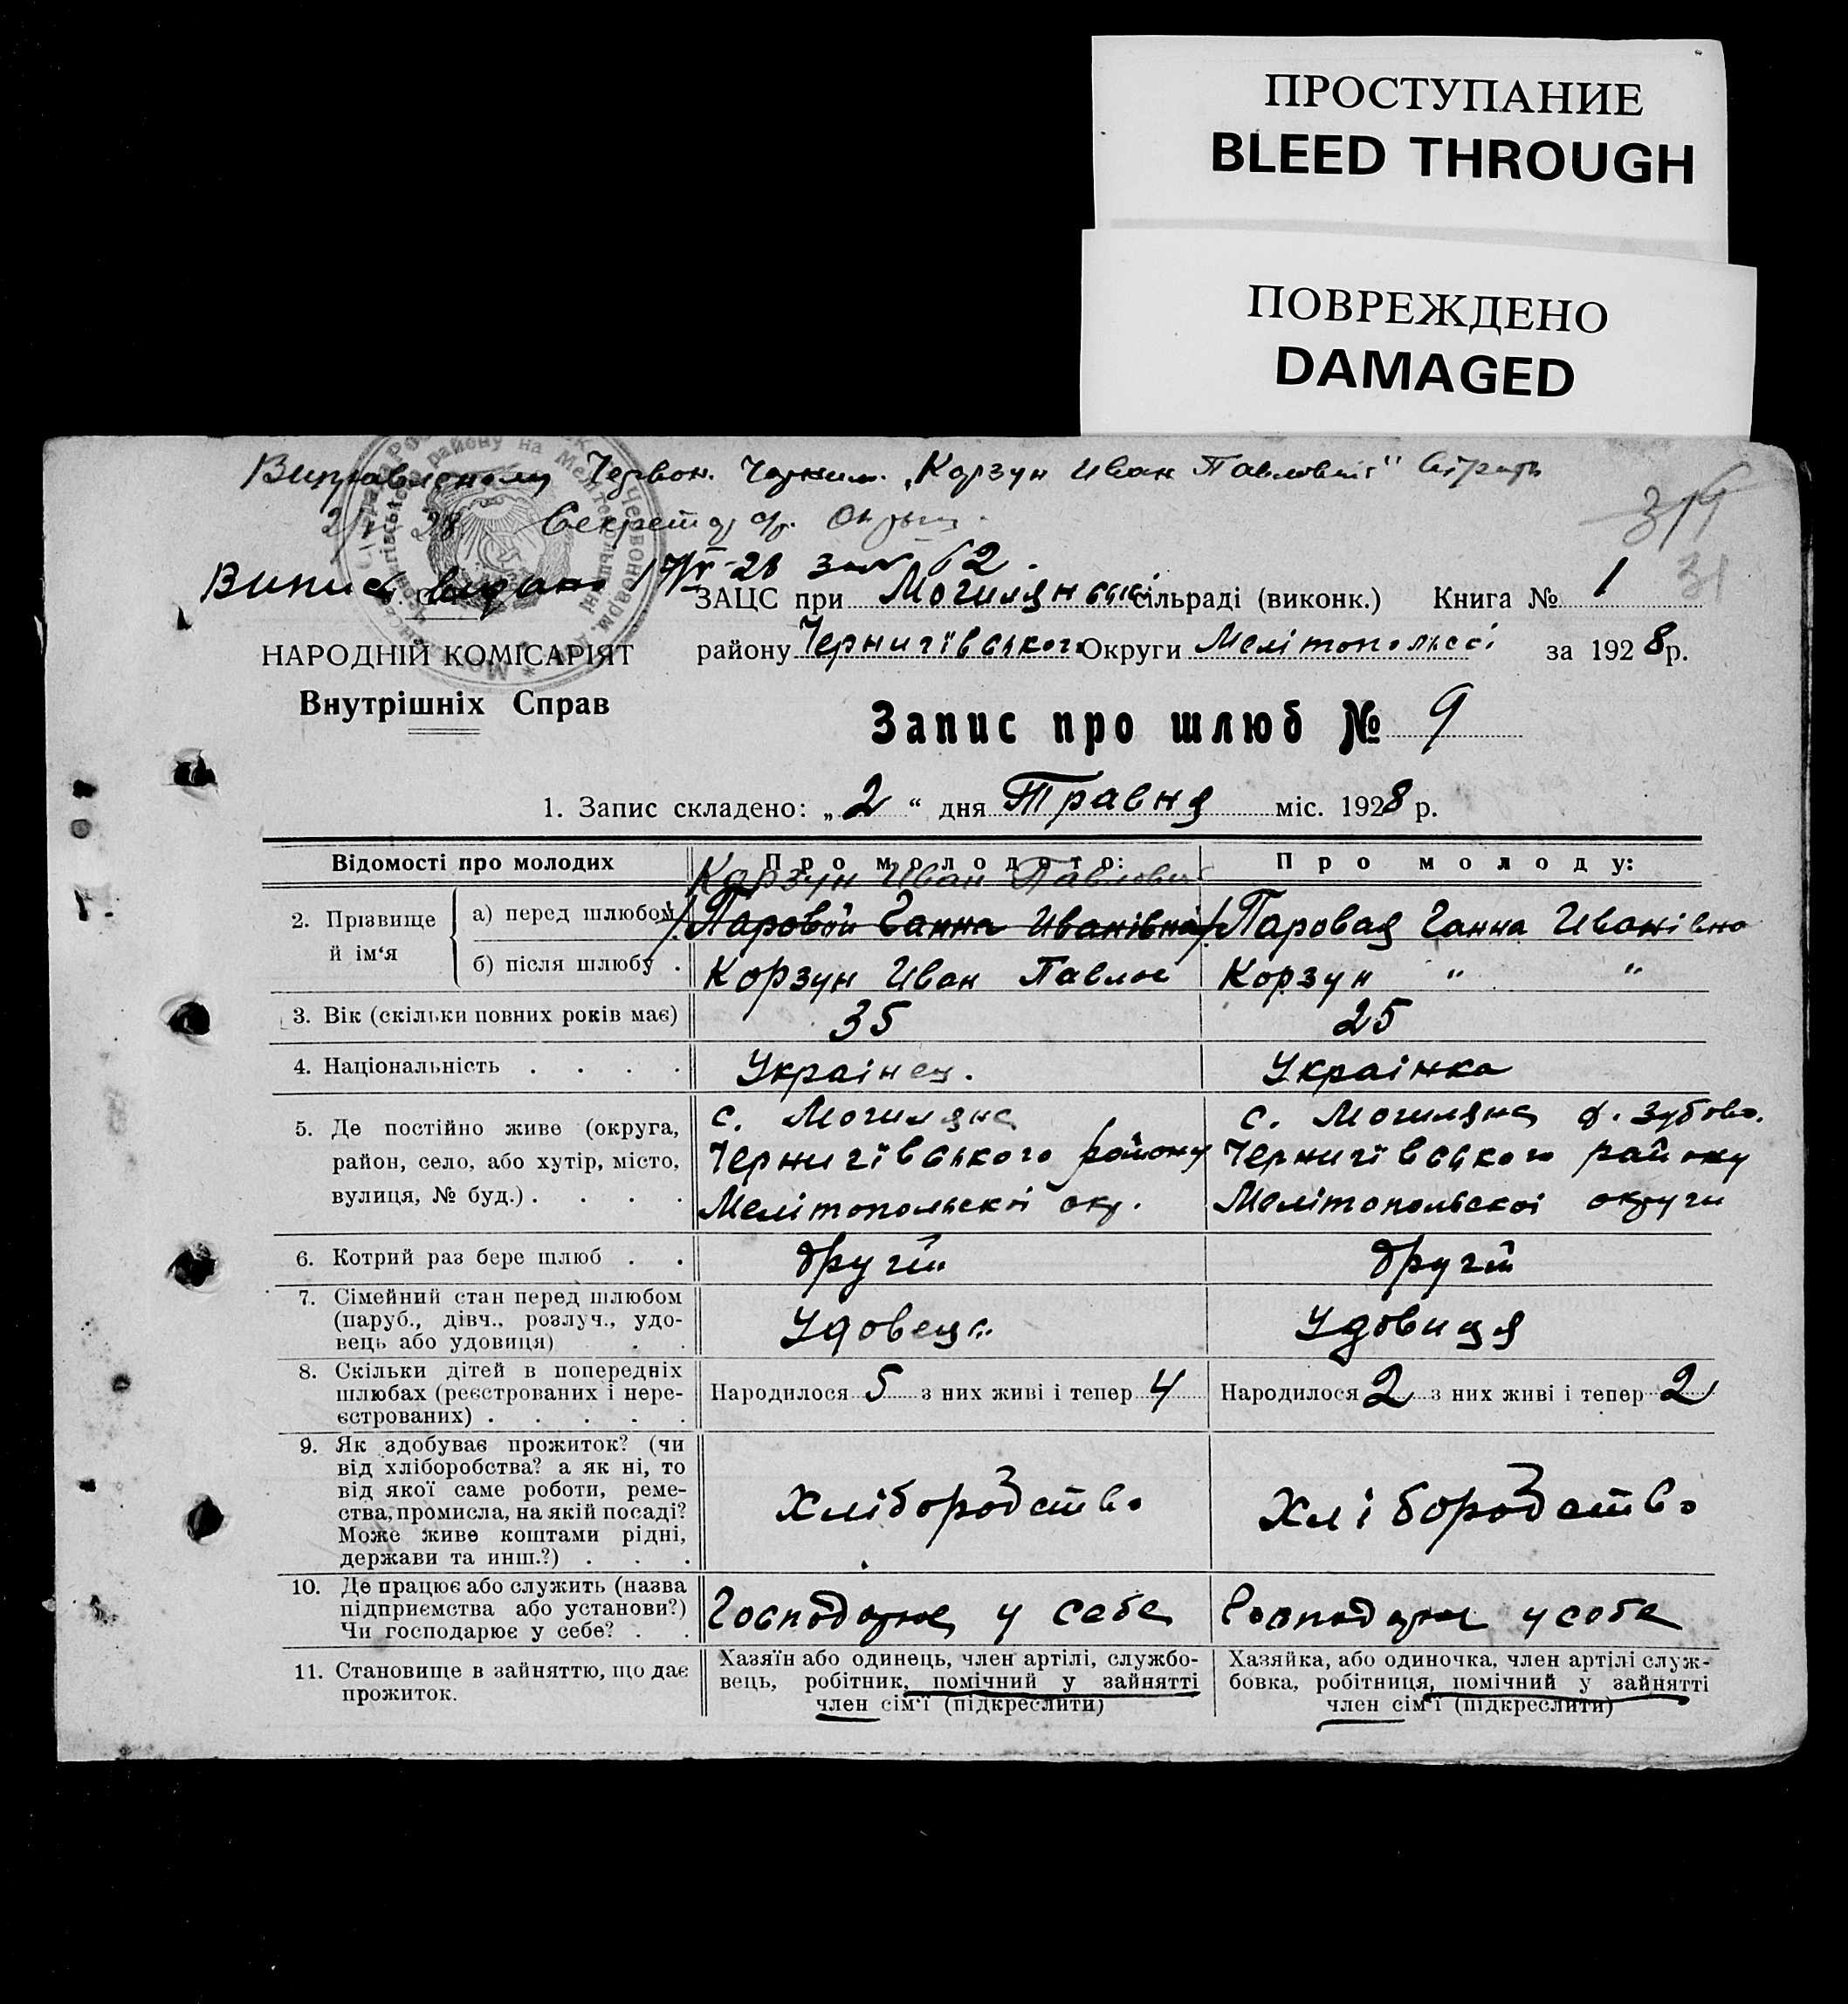 ПРОСТУПАНИЕ
BLEED THROUGH
ПОВРЕЖДЕНО
DAMAGED
Виправленому Червон. "Корзун Иван Павлович"
28 Секретар
Випис видано 17/V-28 62.
314
31
ЗАЦС при Могилянській сільраді (виконк.) Книга № 1
НАРОДНІЙ КОМІСАРІЯТ
Внутрішніх Справ
району Чернигівського Округи Мелітопольскі за 1928 р.
Запис про шлюб № 9
1. Запис складено: „2“ дня Травня міс. 1928 р.
Відомості про молодих
Про молодого:
Про молоду:
2. Прізвище й ім‘я
а) перед шлюбом
Корзун Иван Павлович
Паровой Ганна Иванівна
Паровая Ганна Иванівна
б) після шлюбу .
Корзун Иван Павлов
Корзун " "
3. Вік (скільки повних років має)
35
25
4. Національність . . . .
Украінец.
Украінка
5. Де постійно живе (округа,
район, село, або хутір, місто,
вулиця, № буд.) . . . .
с. Могиляне
Чернигівського району
Мелітопольскоі окр.
с. Могиляне
Чернигівського району
Мелітопольскоі округи
6. Котрий раз бере шлюб . .
другій
другій
7. Сімейний стан перед шлюбом
(паруб., дівч., розлуч., удо-
вець або удовиця) . .
Удовець
Удовиця
8. Скільки дітей в попередніх
шлюбах (реєстрованих і нере-
єстрованих) . . . . .
Народилося 5 з них живі і тепер 4
Народилося 2 з них живі і тепер 2
9. Як здобуває прожиток? (чи
від хліборобства? а як ні, то
від якої саме роботи, реме-
ства, промисла, на якій посаді?
Може живе коштами рідні,
держави та инш.?) . . .
Хлібородство
Хлібородство
10. Де працює або служить (назва
підприємства або установи?)
Чи господарює у себе? . .
Господарює у себе
Господарює у себе
11. Становище в зайняттю, що дає
прожиток.
Хазяїн або одинець, член артілі, службо-
вець, робітник, помічний у зайнятті
член сім‘ї (підкреслити)
Хазяйка, або одиночка, член артілі служ-
бовка, робітниця, помічний у зайнятті
член сім‘ї (підкреслити)